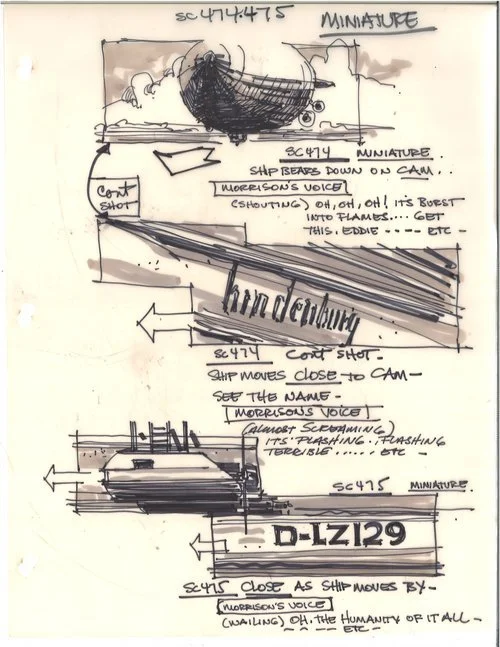 SC 474.475
MINIATURE
SC474 MINIATURE
SHIP BEARS DOWN ON CAM..
MORRISON'S VOICE
(SHOUTING) OH, OH, OH! IT'S BURST
INTO FLAMES.... GET
THIS, EDDIE ---- ETC -
CONT
SHOT
hindenburg
SC474 CONT SHOT -
SHIP MOVES CLOSE TO CAM -
SEE THE NAME -
MORRISON'S VOICE
(ALMOST SCREAMING)
IT'S FLASHING.. FLASHING
TERRIBLE ..... ETC -
SC475 MINIATURE
D-LZ129
SC475 CLOSE AS SHIP MOVES BY -
MORRISON'S VOICE
(WAILING) OH, THE HUMANITY OF IT ALL -
---- ETC -